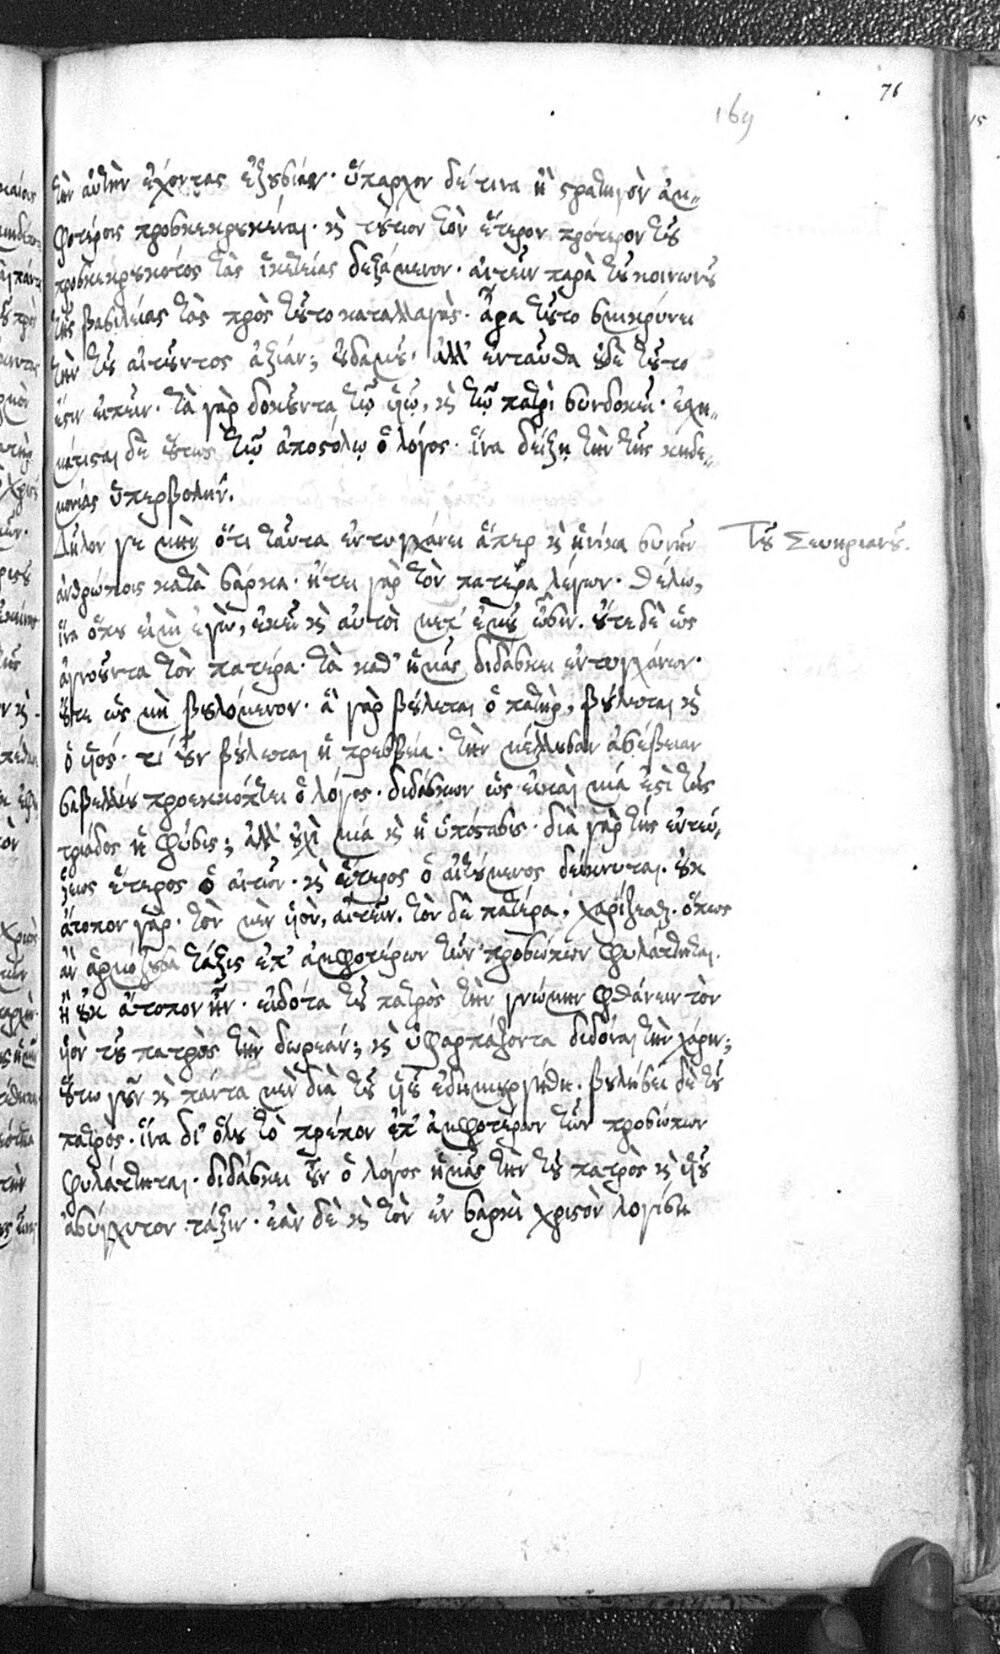 76
169
τὴν αὐτὴν ἔχοντας ἐξουσίαν· ὕπαρχον δέ τινα ἢ στρατηγὸν ἀμ-
φοτέροις προσκεκρουκέναι· καὶ τούτων τὸν ἕτερον πρότερον τοῦ
προσκεκρουκότος τὰς ἱκετείας δεξάμενον· αἰτεῖν παρὰ τοῦ κοινωνοῦ
τῆς βασιλείας τὰς πρὸς τοῦτο καταλλαγὰς· ἆρα τοῦτο σμικρύνει
τὴν τοῦ αἰτοῦντος ἀξίαν; οὐδαμῶς· ἀλλ' ἐνταῦθα οὐδὲ τοῦτο
ἐστιν εἰπεῖν· τὰ γὰρ δοκοῦντα τῷ υἱῷ, καὶ τῷ πατρὶ συνδοκεῖ· ἐσχη-
μάτισται δὲ οὕτως τῷ ἀποστόλῳ ὁ λόγος· ἵνα δείξῃ τὴν τῆς κηδε-
μονίας ὑπερβολήν.
Δῆλον γε μὴν ὅτι ταῦτα ἐντυγχάνει ἅπερ καὶ ἡνίκα συνῆν
Τοῦ Σευηριανοῦ.
ἀνθρώποις κατὰ σάρκα· ᾔτει γὰρ τὸν πατέρα λέγων· θέλω,
ἵνα ὅπου εἰμὶ ἐγὼ, ἐκεῖ καὶ αὐτοὶ μετ' ἐμοῦ ὦσιν. οὔτε δὲ ὡς
ἀγνοοῦντα τὸν πατέρα· τὰ καθ' ἡμᾶς διδάσκει ἐντυγχάνων·
οὔτε ὡς μὴ βουλόμενον· ἃ γὰρ βούλεται ὁ πατὴρ, βούλεται καὶ
ὁ υἱός· τί οὖν βούλεται ἡ πρεσβεία· τὴν μέλλουσαν ἀσέβειαν
σαβελλίου προεκκόπτει ὁ λόγος· διδάσκων ὡς εἰ καὶ μία ἐστὶ τῆς
τριάδος ἡ φύσις; ἀλλ' οὐχὶ μία καὶ ἡ ὑπόστασις· διὰ γὰρ τῆς ἐντεύ-
ξεως ἕτερος ὁ αἰτῶν· καὶ ἕτερος ὁ αἰτούμενος δείκνυται. οὐκ
ἄτοπον γὰρ· τὸν μὲν υἱὸν, αἰτεῖν. τὸν δὲ πατέρα, χαρίζεσθαι. ὅπως
ἂν ἁρμόζουσα τάξις ἐπ' ἀμφοτέρων τῶν προσώπων φυλάττηται.
ἢ οὐκ ἄτοπον ἦν· εἰδότα τοῦ πατρὸς τὴν γνώμην φθάνειν τὸν
υἱὸν τοῦ πατρὸς τὴν δωρεάν; καὶ ὑφαρπάζοντα διδόναι τὴν χάριν;
οὕτω γοῦν καὶ πάντα μὲν διὰ τοῦ υἱοῦ ἐδημιουργήθη· βουλήσει δὲ τοῦ
πατρός· ἵνα δι' ὅλου τὸ πρέπον ἐπ' ἀμφοτέρων τῶν προσώπων
φυλάττηται· διδάσκει οὖν ὁ λόγος ἡμᾶς τὴν τοῦ πατρὸς καὶ υἱοῦ
ἀσύγχυτον τάξιν· ἐὰν δὲ καὶ τὸν ἐν σαρκὶ χριστὸν λογίσῃ